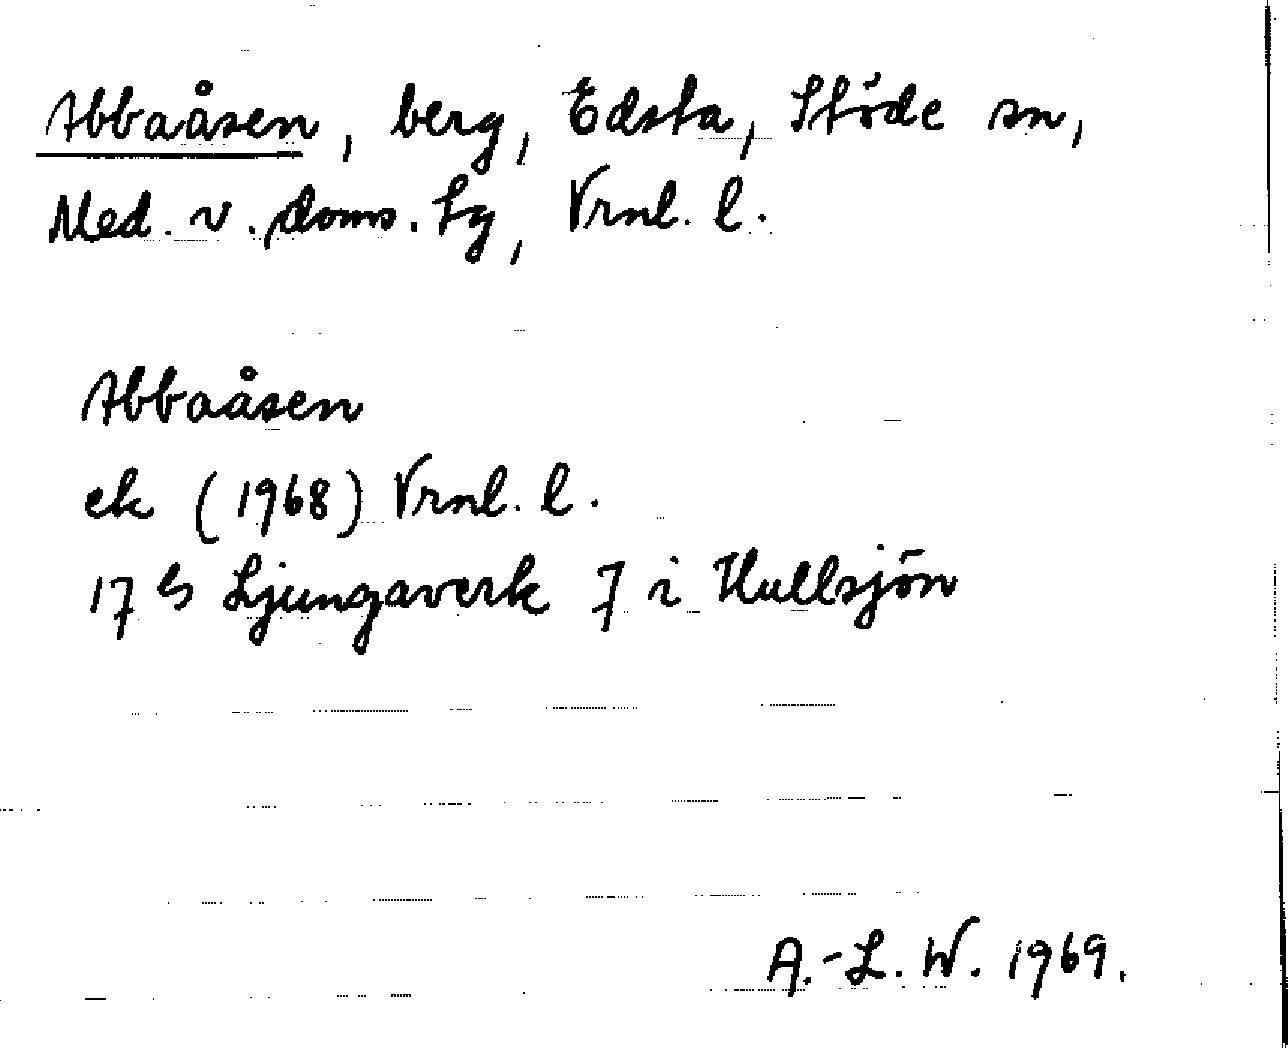 Abbaåsen, berg, Edsta, Stöde sn,
Med. v. doms. lg, Vrnl. l.
Abbaåsen
ek (1968) Vrnl. l.
17 Ljungaverk 7 i Hullsjön
A.-L. W. 1969.